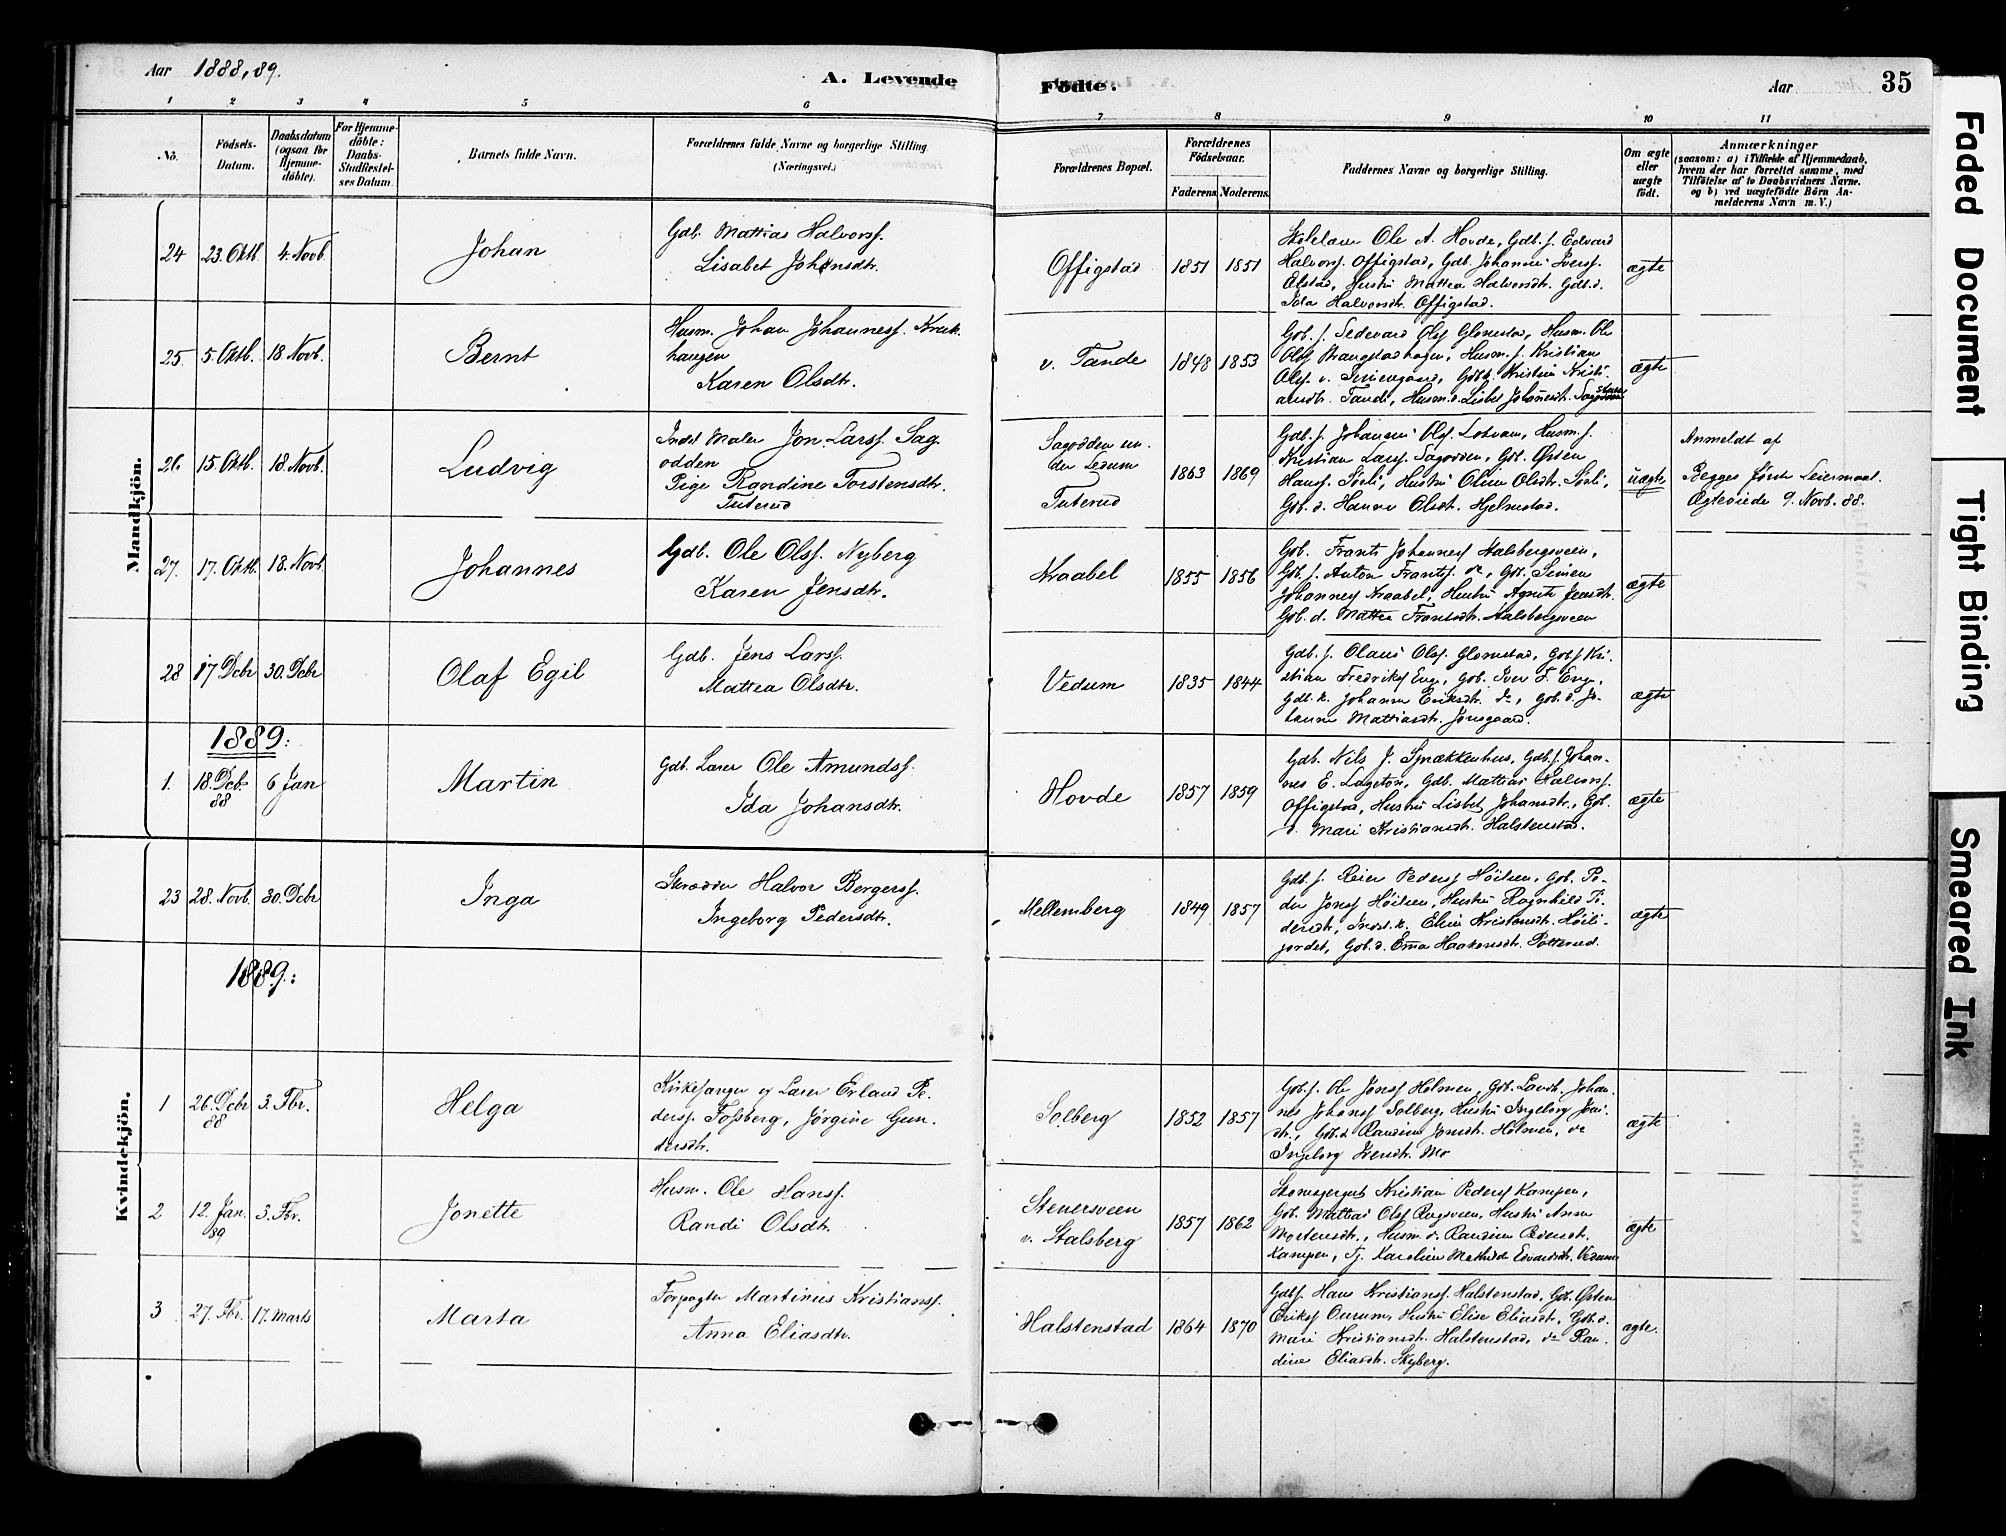 Aar 1888, 89.
A. Levende
Fødte.
Aar
35
1 2 3 4 5 6 7 8 9 10 11
No.
Fødsels-
Datum.
Daabsdatum
(ogsaa for
Hjemme-
døbte).
For Hjemme-
døbte:
Daabs-
Stadfæstel-
ses Datum.
Barnets fulde Navn.
Forældrenes fulde Navne og borgerlige Stilling
(Næringsvei.)
Forældrenes Bopæl.
Forældrenes
Fødselsaar.
Faderens Moderens.
Faddernes Navne og borgerlige Stilling.
Om ægte
eller
uægte
født.
Anmærkninger
(saasom: a) i Tilfælde af Hjemmedaab,
hvem der har forrettet samme, med
Tilføielse af to Daabsvidners Navne.
og b) ved uægtefødte Børn An-
melderens Navn m. V.)
Mandkjön.
24 23. Oktb. 4. Novb. Johan
Gdb. Mattias Halvorss.
Lisabet Johansdtr.
Offigstad 1851 1851
Skolelærer Ole A. Hovde, Gdb. s. Edvard
Halvorss. Offigstad, Gdb. Johannes Iverss.
Elstad, Hustru Mathea Halvorsdtr. Gdb. d.
Ida Halvorsdtr. Offigstad.
ægte
25 5. Oktb. 18 Novb. Bernt
Husm. Johan Johanness. Kruk-
haugen
Karen Olsdtr.
v. Tande 1848 1853
Husm. Ole
Husm. s. Kristian
ægte
26 15. Oktb. 18. Novb. Ludvig
Inds. Maler Jon Larss. Sag-
odden
Pige Randine Torstensdtr.
Tuterud
Sagodden un-
der Vedum
Tuterud
1863 1869
Kristian Larss. Sagodden, Gdb. Østen
Hanss. Sørli, Hustru Oline Olsdtr. Sørli,
Gdb. d. Hanna Olsdtr. Hjelmstad.
uægte
Anmeldt af
Begges første Leiermaal.
Ægteviede 9. Novb. 88.
27. 17. Oktb. 18. Novb. Johannes
Gdb. Ole Olss. Nyberg
Karen Jensdtr.
Kraabel 1855 1856
Gdb. Frants Johanness Stalsbergsveen,
Gdb. s. Anton Frantss. do, Gdb. Simen
Johanness Kraabel, Hustru Agnete Jensdtr.
Gdb. d. Mathea Frantsdtr. Stalsbergsveen
ægte
28 17 Dcbr 30. Dcbr Olaf Egil
Gdb. Jens Larss.
Mattea Olsdtr.
Vedum 1835 1844
Gdb. s. Olaus Olss. Glomstad, Gdb. s. Kri-
stian Fredrikss Enge, Gdb. Iver F. Enge,
Gdb. k. Johanne Eriksdtr. do, Gdb. d. Jo-
hanne Mattiasdtr. Jonsgaard.
ægte
1889:
1. 18. Dcb. 88 6 Jan Martin
Gdb. Lærer Ole Amundss.
Ida Johansdtr.
Hovde 1857 1859
Gdb. Nils J. Sprækkenhus, Gdb. s. Johan-
nes E. Lageton, Gdb. Mattias Halvorss.
Offigstad, Hustru Lisbet Johansdtr., Gdb.
d. Mari Kristiansdtr. Halstenstad.
ægte
Kvindekjön.
23 28. Novb. 30. Dcbr Inga
Skrædder Halvor Bergerss.
Ingeborg Pedersdtr.
Mellemberg 1849 1857
Gdb. s. Reier Pederss Høilien, Gdb. Pe-
der Jonss Høilien, Hustru Ragnhild Pe-
dersdtr, Inds. k. Eline Kristensdtr. Høili-
jordet, Gdb. d. Emma Haakensdtr. Potterud.
ægte
1889.:
1 26. Dcbr 88 3. Fbr. Helga
Kirkesanger og Lærer Erland Pe-
derss. Fossberg, Jørgine Gun-
dersdtr.
Solberg 1852 1857
Gdb. s. Ole Jonss Holmen, Gdb. Landh. Johan-
nes Johanss Solberg, Hustru Ingeborg Jons-
dtr., Gdb. d. Randine Jonsdtr. Holmen, do
Ingeborg Iversdtr. Mo
ægte
2 12. Jan. 89 3. Fbr. Jonette
Husm. Ole Hanss.
Randi Olsdtr.
Stenersveen
v. Stalsberg
1857 1862
Kristian Pederss Kampen,
Gdb. Mattias Olss Rugsveen, Hustru Anne
Mortensdtr., Husm. d. Randine Pedersdtr.
Kampen, Tj. Karoline Mathilde Edvardsdtr. Vedum
ægte
3 27. Fbr. 17. Marts Marta
Forpagter Martinus Kristianss.
Anna Eliasdtr.
Halstenstad 1864 1870
Gdbs. Hans Kristianss. Halstenstad, Gdb. Østen
Erikss Aurum, Hustru Elise Eliasdtr, Gdb. d.
Mari Kristiansdtr. Halstenstad, do Ran-
dine Eliasdtr. Skyberg.
ægte.
Faded Document
Tight Binding
Smeared Ink